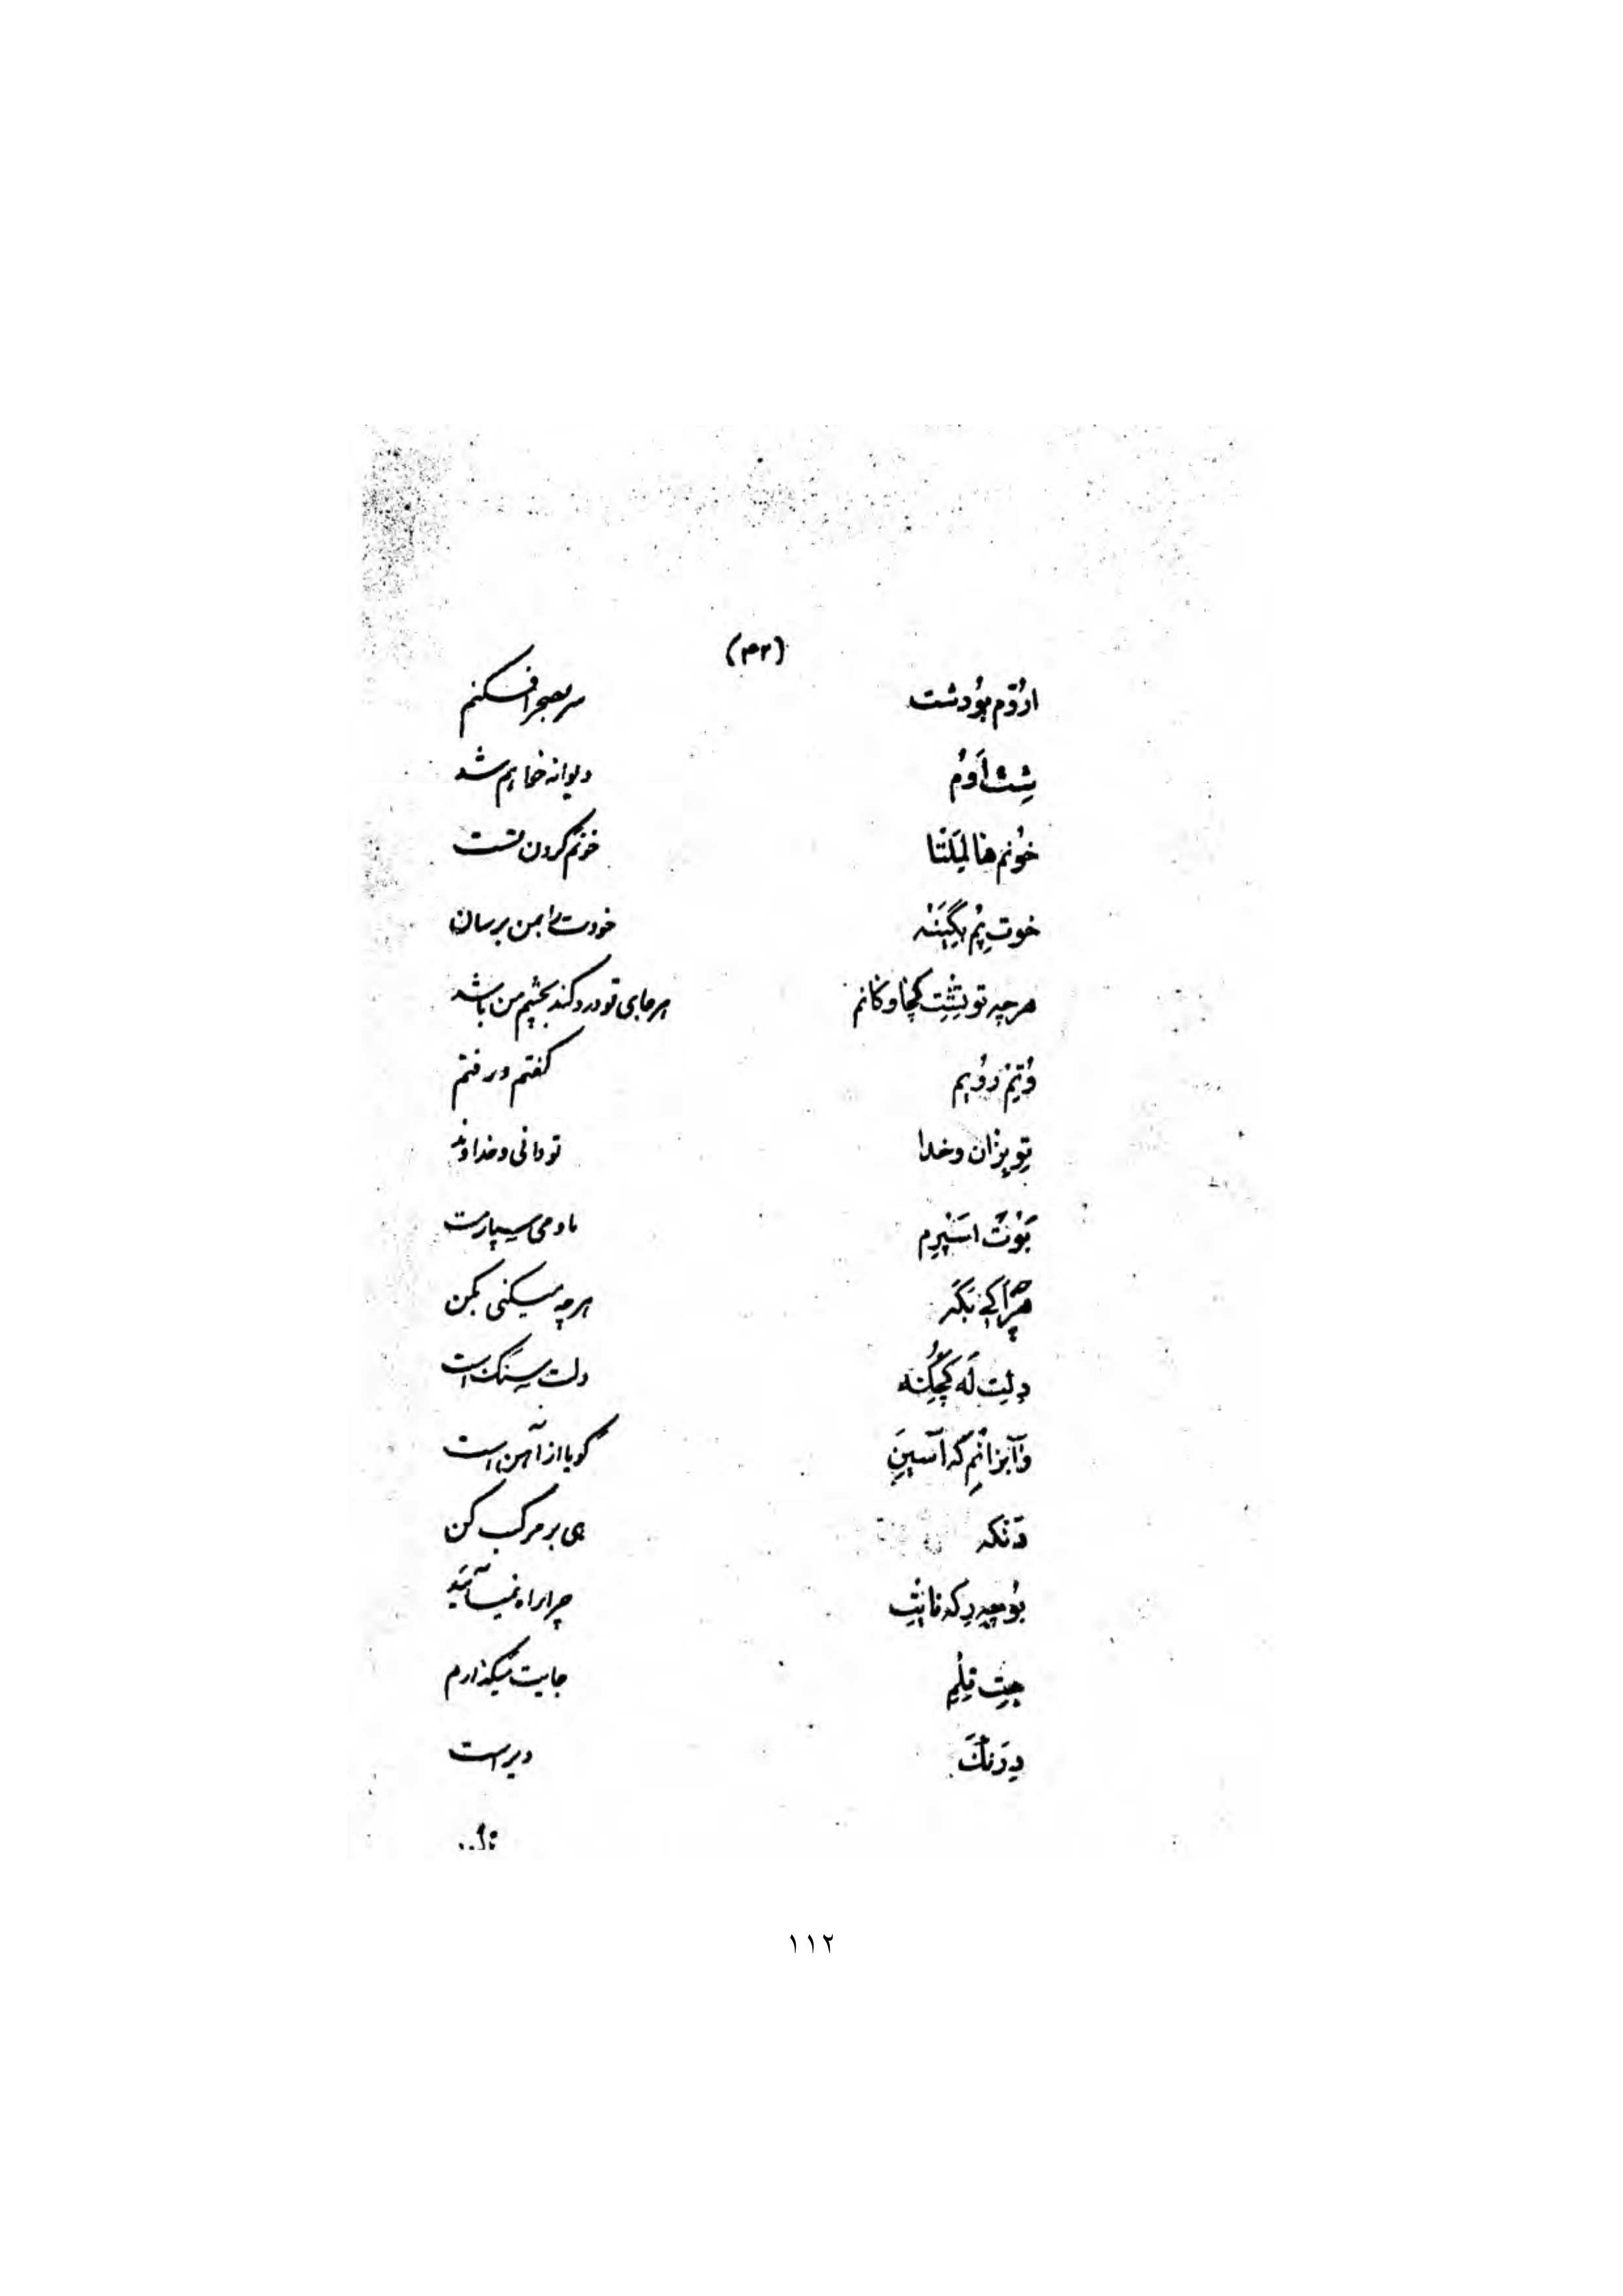 (۴۲)
ارُوّم بوُ دشت سر بصحرا فکنم
شِت اَوُم دیوانه خواهم شد
خوُنم هنا لیلتا خونم گردن تست
خوت پم بگیَنه خودت را بمن برسان
هرچه تو بیِّت کچا و کانم هر جای تو درد کند بچشم من باشد
وُتِم رَوُیم گفتم و رفتم
تو بزان و خدا تو دانی و خداوند
بَوُت اسپرم باو می سپارمت
هرچه میکنی بکن
دلِت لَه کُچکِنه دلت سنگ است
وآبزانم کَه آسِینِ گویا از آهن است
دَنکه هی بر مرکب کن
بوُچه رِکه نایِت چرا راه نمیآئید
جِت تِلِم جایت میگذارم
دِرَنگ دیر است
۱۱۲